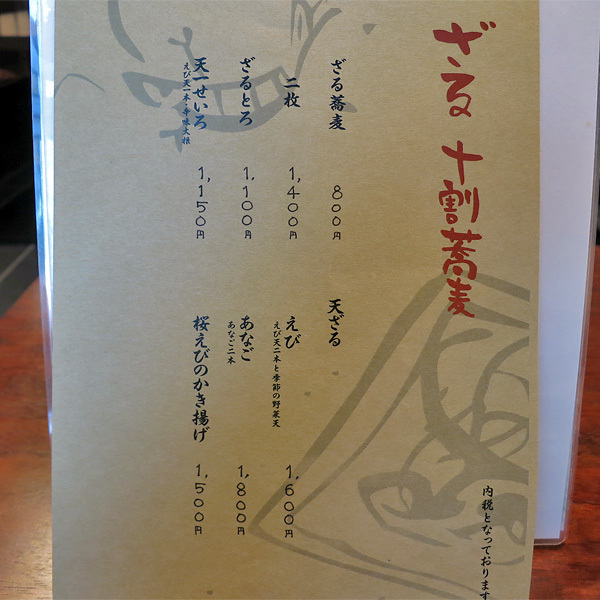 ざる 十割蕎麦
ざる蕎麦 800円
二枚 1,400円
ざるとろ 1,100円
天一せいろ 1,150円
えび天一本・辛味大根
天ざる
えび 1,600円
えび天二本と季節の野菜天
あなご 1,800円
あなご二本
桜えびのかき揚げ 1,500円
内税となっております